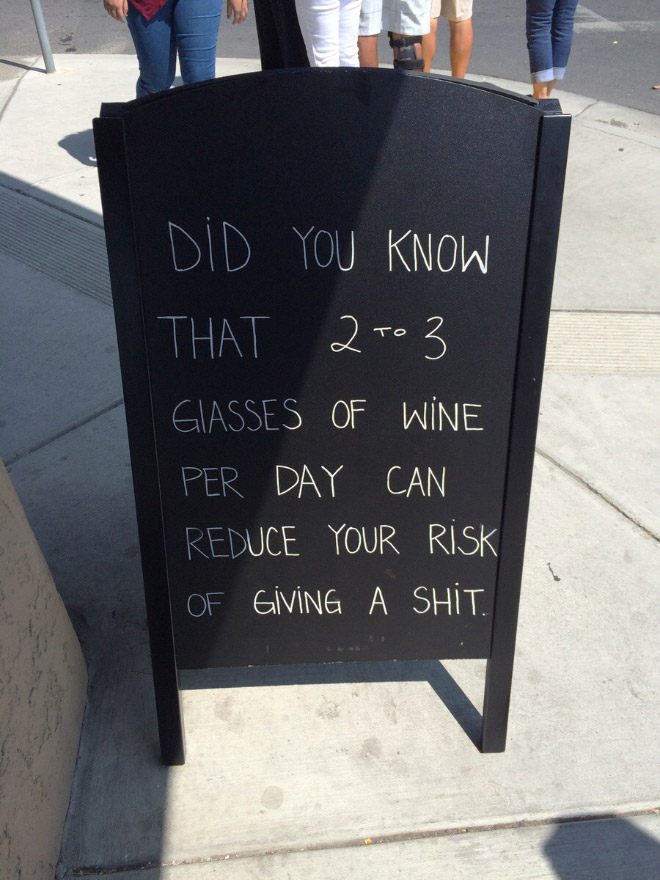 DiD YOU KNOW
THAT 2 TO 3
GlASSES OF WiNE
PER DAY CAN
REDUCE YOUR RiSK
OF GiViNG A SHiT.